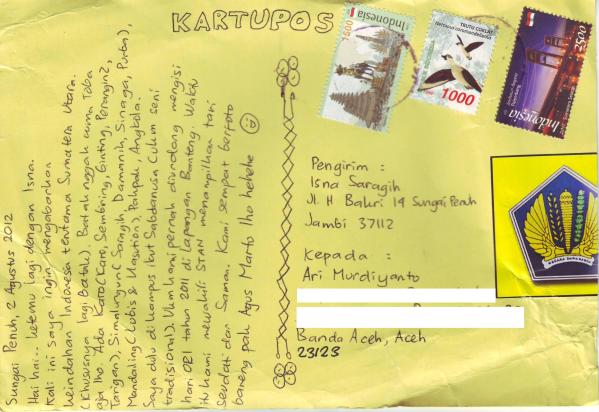 KARTUPOS
Sungai Penuh, 2 Agustus 2012
Hai hai.. ketemu lagi dengan Isna.
Kali ini saya ingin mengabarkan
keindahan Indonesia terutama Sumatera Utara.
(khususnya lagi Batak). Batak nggak cuma Toba
aja lho. Ada Karo (Karo, Sembiring, Ginting, Perangin2,
Tarigan), Simalungun (Saragih, Damanik, Sinaga, Purba),
Mandailing (Lubis & Nasution), Pakpak, Angkola.
Saya dulu di kampus ikut Sabdanusa (ukm seni
tradisional). Ukm kami pernah diundang mengisi
hari ORI tahun 2011 di lapangan Banteng. Waktu
itu kami mewakili STAN menampilkan tari
seudati dan Saman. Kami sempat berfoto
bareng pak Agus Marto lho hehehe
1500
Indonesia
TRUTU COKLAT
1000
Indonesia
2500
Pengirim :
Isna Saragih
Jl. H Bakri 14 Sungai Penuh
Jambi 37112
Kepada :
Ari Murdiyanto
Banda Aceh, Aceh
23123
NAGARA DANA RAKCA